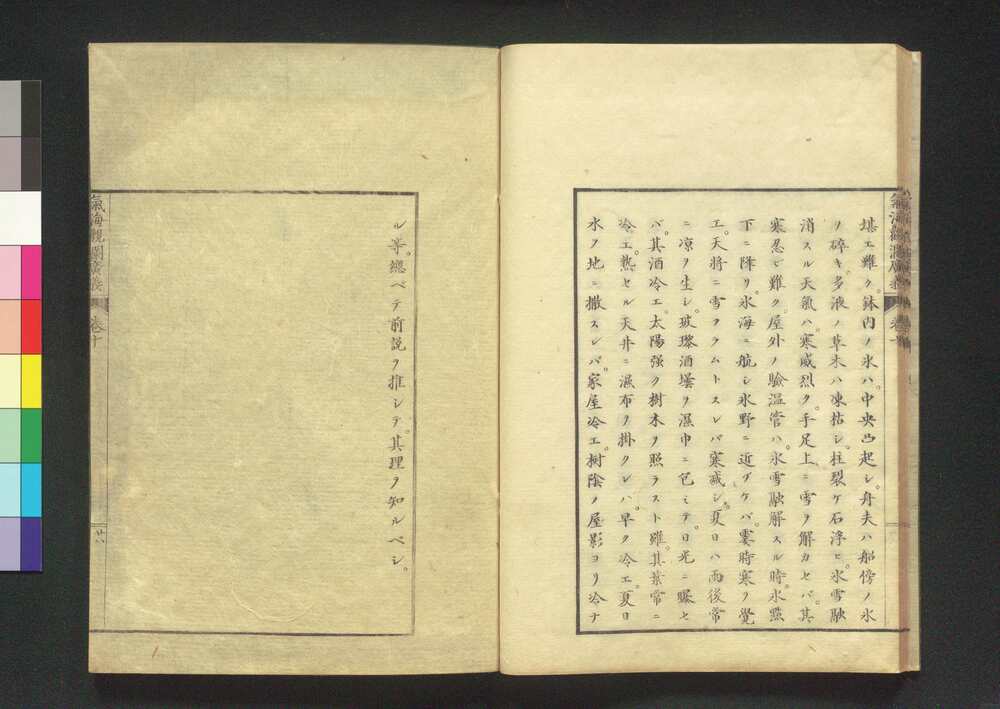 堪エ難ク。鉢内ノ氷ハ。中央凸起シ。舟夫ハ船傍ノ氷
ヲ碎キ。多液ノ草木ハ凍枯シ。柱裂ケ石浮ヒ。氷雪融
消スル天氣ハ。寒威烈ク。手足上ニ雪ヲ解カセバ。其
寒忍ビ難ク。屋外ノ驗温管ハ。氷雪融解スル時。氷點
下ニ降リ。氷海ニ航シ氷野ニ近ヅケバ。霎時寒ヲ覺
エ。天將ニ雪フラムトスレバ寒減シ。夏日ハ雨後常
ニ凉ヲ生シ。玻瓈酒壜ヲ濕巾ニ包ミテ。日光ニ曝セ
バ。其酒冷エ。太陽强ク樹木ヲ照ラスト雖。其葉常ニ
冷エ。熱セル天井ニ濕布ヲ掛クレハ。早ク冷エ。夏日
水ヲ地ニ撒スレバ。家屋冷エ。樹陰ノ屋影ヨリ冷ナ
氣海觀瀾廣義
卷十
ル等。總ベテ前説ヲ推シテ。其理ヲ知ルベシ。
氣海觀瀾廣義
卷十
廿八